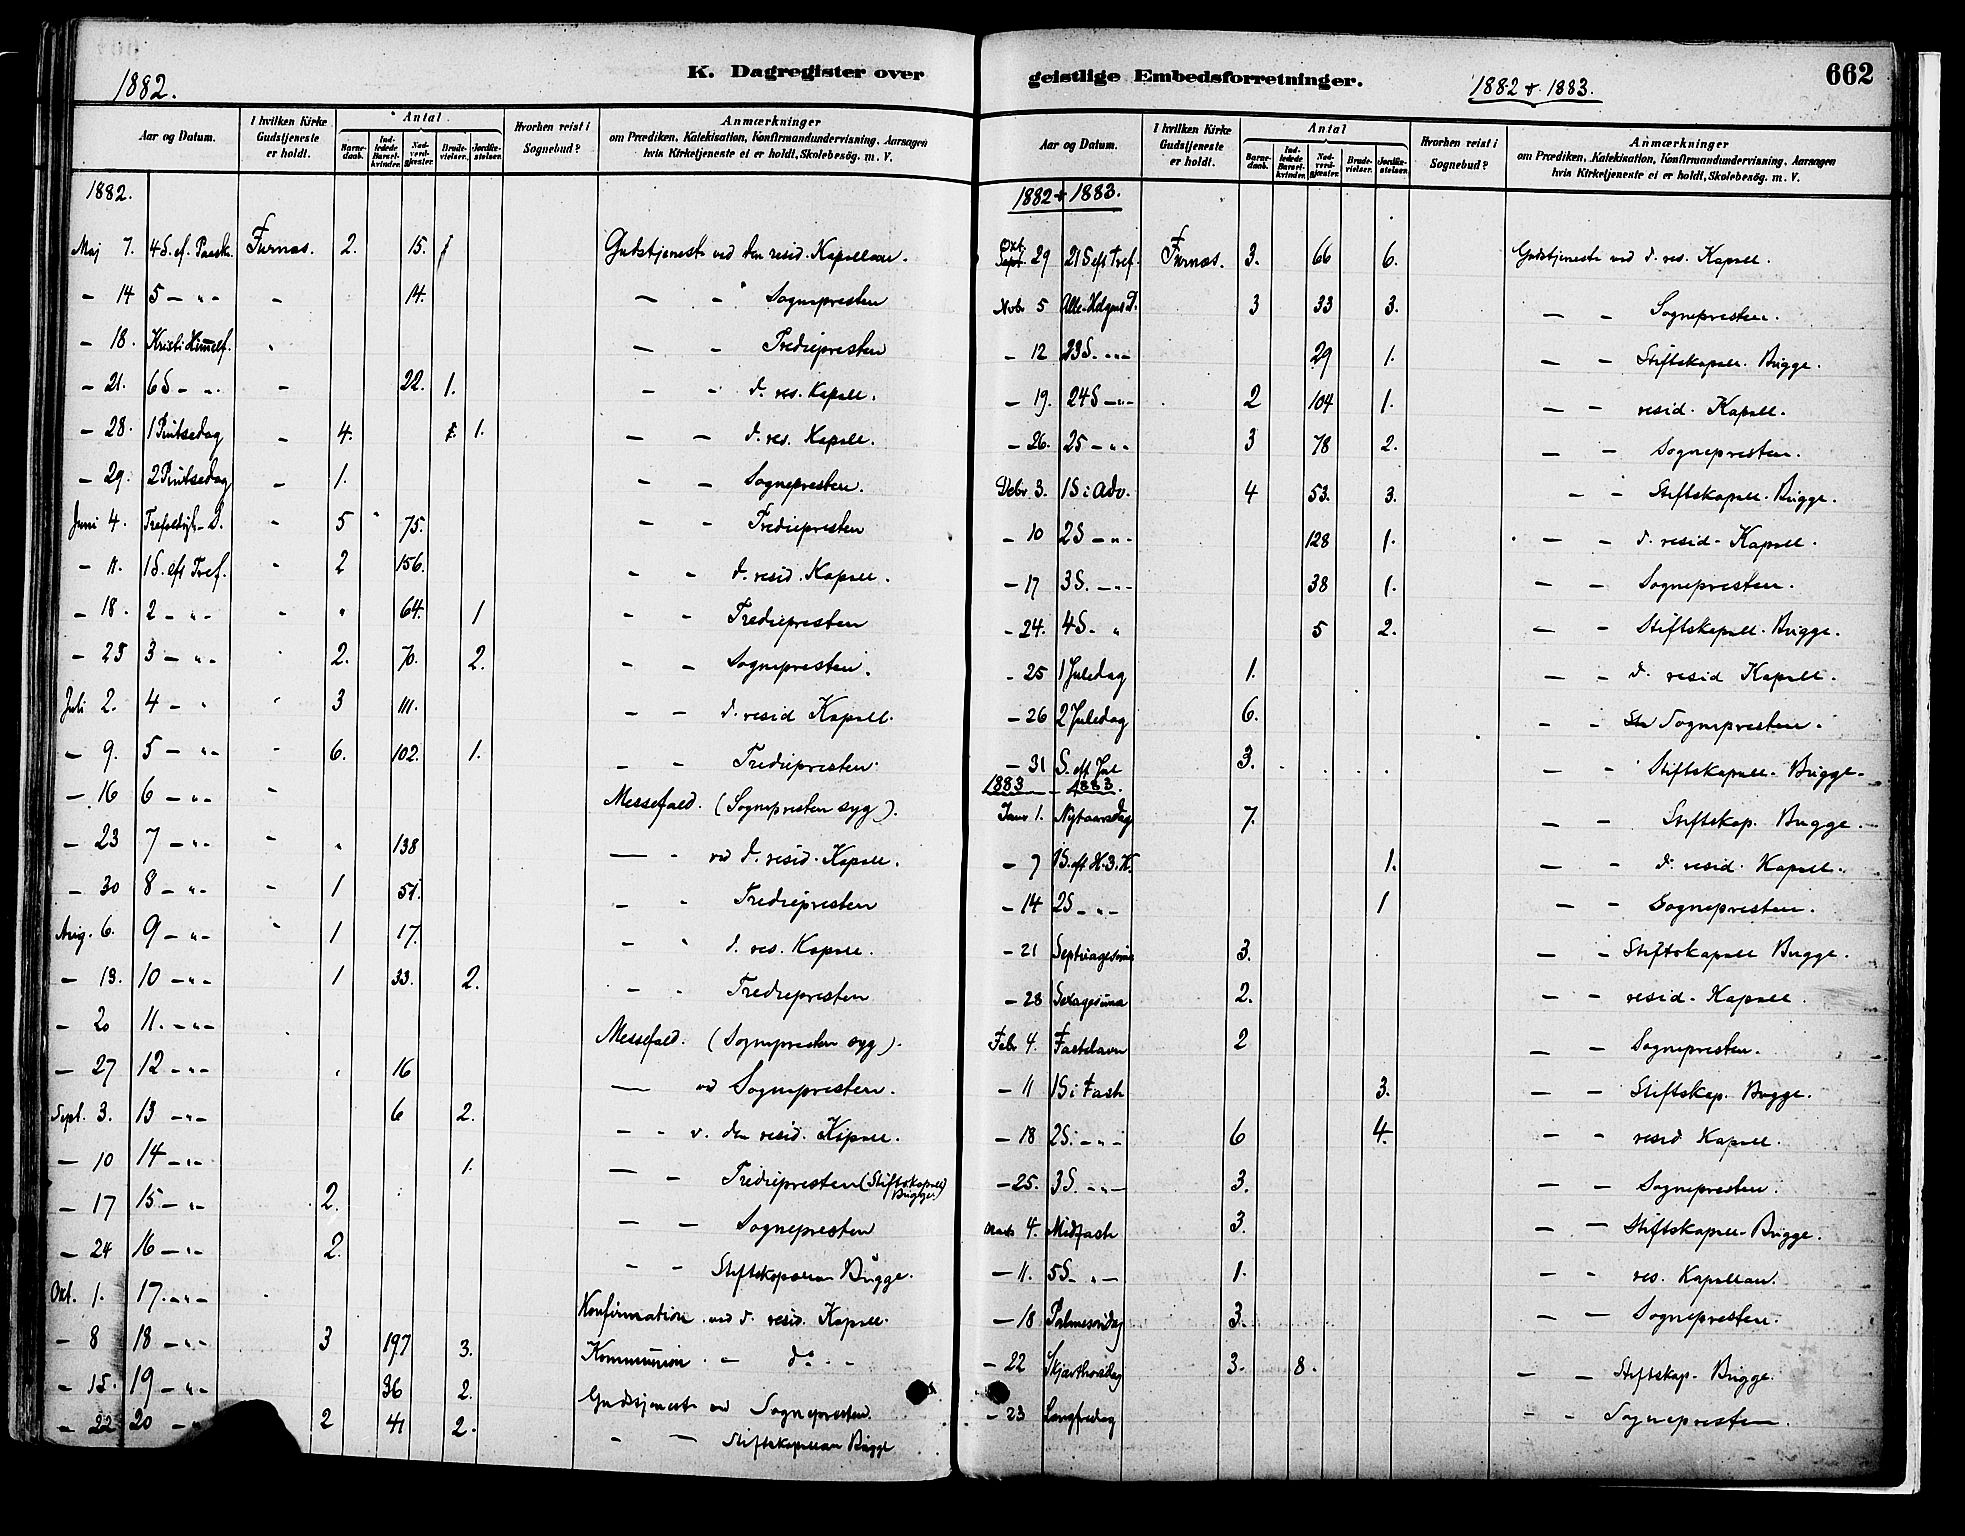 1882.
K. Dagregister over
Aar og Datum. I hvilken Kirke Gudstjeneste er holdt. Antal. Barnedaab. Indledede Barselkvinder. Nadverdgjester. Brudevielser. Jordfæstelser. Hvorhen reist i Sognebud? Anmærkninger om Prædiken, Katekisation, Konfirmandundervisning, Aarsagen hvis Kirketjeneste ei er holdt, Skolebesøg. m. V.
1882.
Maj 7. 4 S. ef. Paask. Furnæs. 2. 15. Gudstjeneste ved den resid. Kapellan.
- 14 5 - " - - 14. - " Sognepresten
- 18. Kristi Himmelf. - - Trediepresten
- 21. 6 S - " - 22. 1. - " d. res. Kapell.
- 28. 1 Pintsedag - 4. 1. - - d. res. Kapell.
- 29. 2 Pintsedag - 1. - - Sognepresten.
Juni 4. Trefoldigh-S. - 5 75. - - Trediepresten
- 11. 1 S. eft Tref. - 2 156. - - d. resid. Kapell.
- 18. 2 - " - - " 64. 1 - - Trediepresten
- 25 3 - " - 2. 70. 2. - - Sognepresten.
Juli 2. 4 - " - 3 111. - - d. resid Kapell.
- 9. 5 - " - - 6. 102. 1. - - Trediepresten.
- 16 6 - " - - Messefald. (Sognepresten syg).
- 23 7 - " - - " 138 - " ved d. resid. Kapell.
- 30 8 - " - - 1 51. - - Trediepresten
Aug. 6. 9 - " - 1 17. - " d. res. Kapell.
- 13. 10 - " - 1 33. 2. - - Trediepresten
- 20 11. - " - Messefald. (Sognepresten syg).
- 27 12 - " - 16 - ved Sognepresten.
Sept. 3. 13 - " - 6 2. - - v. den resid. Kapell.
- 10 14 - " - 1. - - Trediepresten (Stiftskapell Bugge)
- 17 15. - " - 2. - - Sognepresten
- 24 16 - " - 2. - - Stiftskapellan Bugge.
Okt. 1. 17. - " - Konfirmation ved d. resid. Kapell.
- 8 18 - " - 3 197 3. Kommunion. - do - -
- 15. 19 - " - 36 2. Gudstjeneste ved Sognepresten.
- 22 20 - 2 41 2. - - Stiftskapellan Bugge
geistlige Embedsforretninger.
1882 & 1883.
662
Aar og Datum. I hvilken Kirke Gudstjeneste er holdt. Antal Barnedaab. Indledede Barselkvinder. Nadverdgjester. Brudevielser. Jordfæstelser. Hvorhen reist i Sognebud? Anmærkninger om Prædiken, Katekisation, Konfirmandundervisning, Aarsagen hvis Kirketjeneste ei er holdt, Skolebesøg. m. V.
1882 & 1883.
Okt. 29 21 S eft Tref. Furnæs. 3. 66 6. Gudstjeneste ved d. res. Kapell.
Nvbr 5 Alle-Helgens D. 3 33 3. - - Sognepresten.
- 12 23 S. - " - 29 1. - - Stiftskapell. Bugge.
- 19. 24 S - " - 2 104 1. - - resid. Kapell.
- 26. 25 - " - 3 78 2. - - Sognepresten.
Debr 3. 1 S i Adv. 4 53. 3. - - Stiftskapell. Bugge.
- 10 2 S - " - 128 1. - - d. resid. Kapell.
- 17 3 S. - " - 38 1. - - Sognepresten.
- 24. 4 S - " 5 2. - - Stiftskapell. Bugge.
- 25 1 Juledag 1. - - d. resid Kapell.
- 26 2 Juledag 6. - - Sognepresten.
- 31 S. eft Jul 3. - - Stiftskapell. Bugge.
1883 - 1883.
Janr 1. Nytaarsdag 7. - - Stiftskap. Bugge.
- 7 1 S. eft H. 3. K. 1. - - d. resid. Kapell.
- 14 2 S - " - 1 - - Sognepresten.
- 21 Septuagesima 3. - Stiftskapell Bugge.
- 28 Sexagesima 2. - - resid. Kapell.
Febr 4. Fastelavn 2 - - Sognepresten.
- 11 1 S i Fast 3. - - Stiftskap. Bugge.
- 18 2 S. - " - 6 4. - - resid Kapell.
- 25. 3 S. - " - 3. - - Sognepresten.
Marts 4. Midfaste 3. - - Stiftskapell. Bugge.
- 11. 5 S - " - 1. - - res. Kapellan.
- 18 Palmesøndag 3. - - Sognepresten.
- 22 Skjærthorsdag 3. 8. - - Stiftskap. Bugge.
- 23 Langfredag - - Sognepresten.